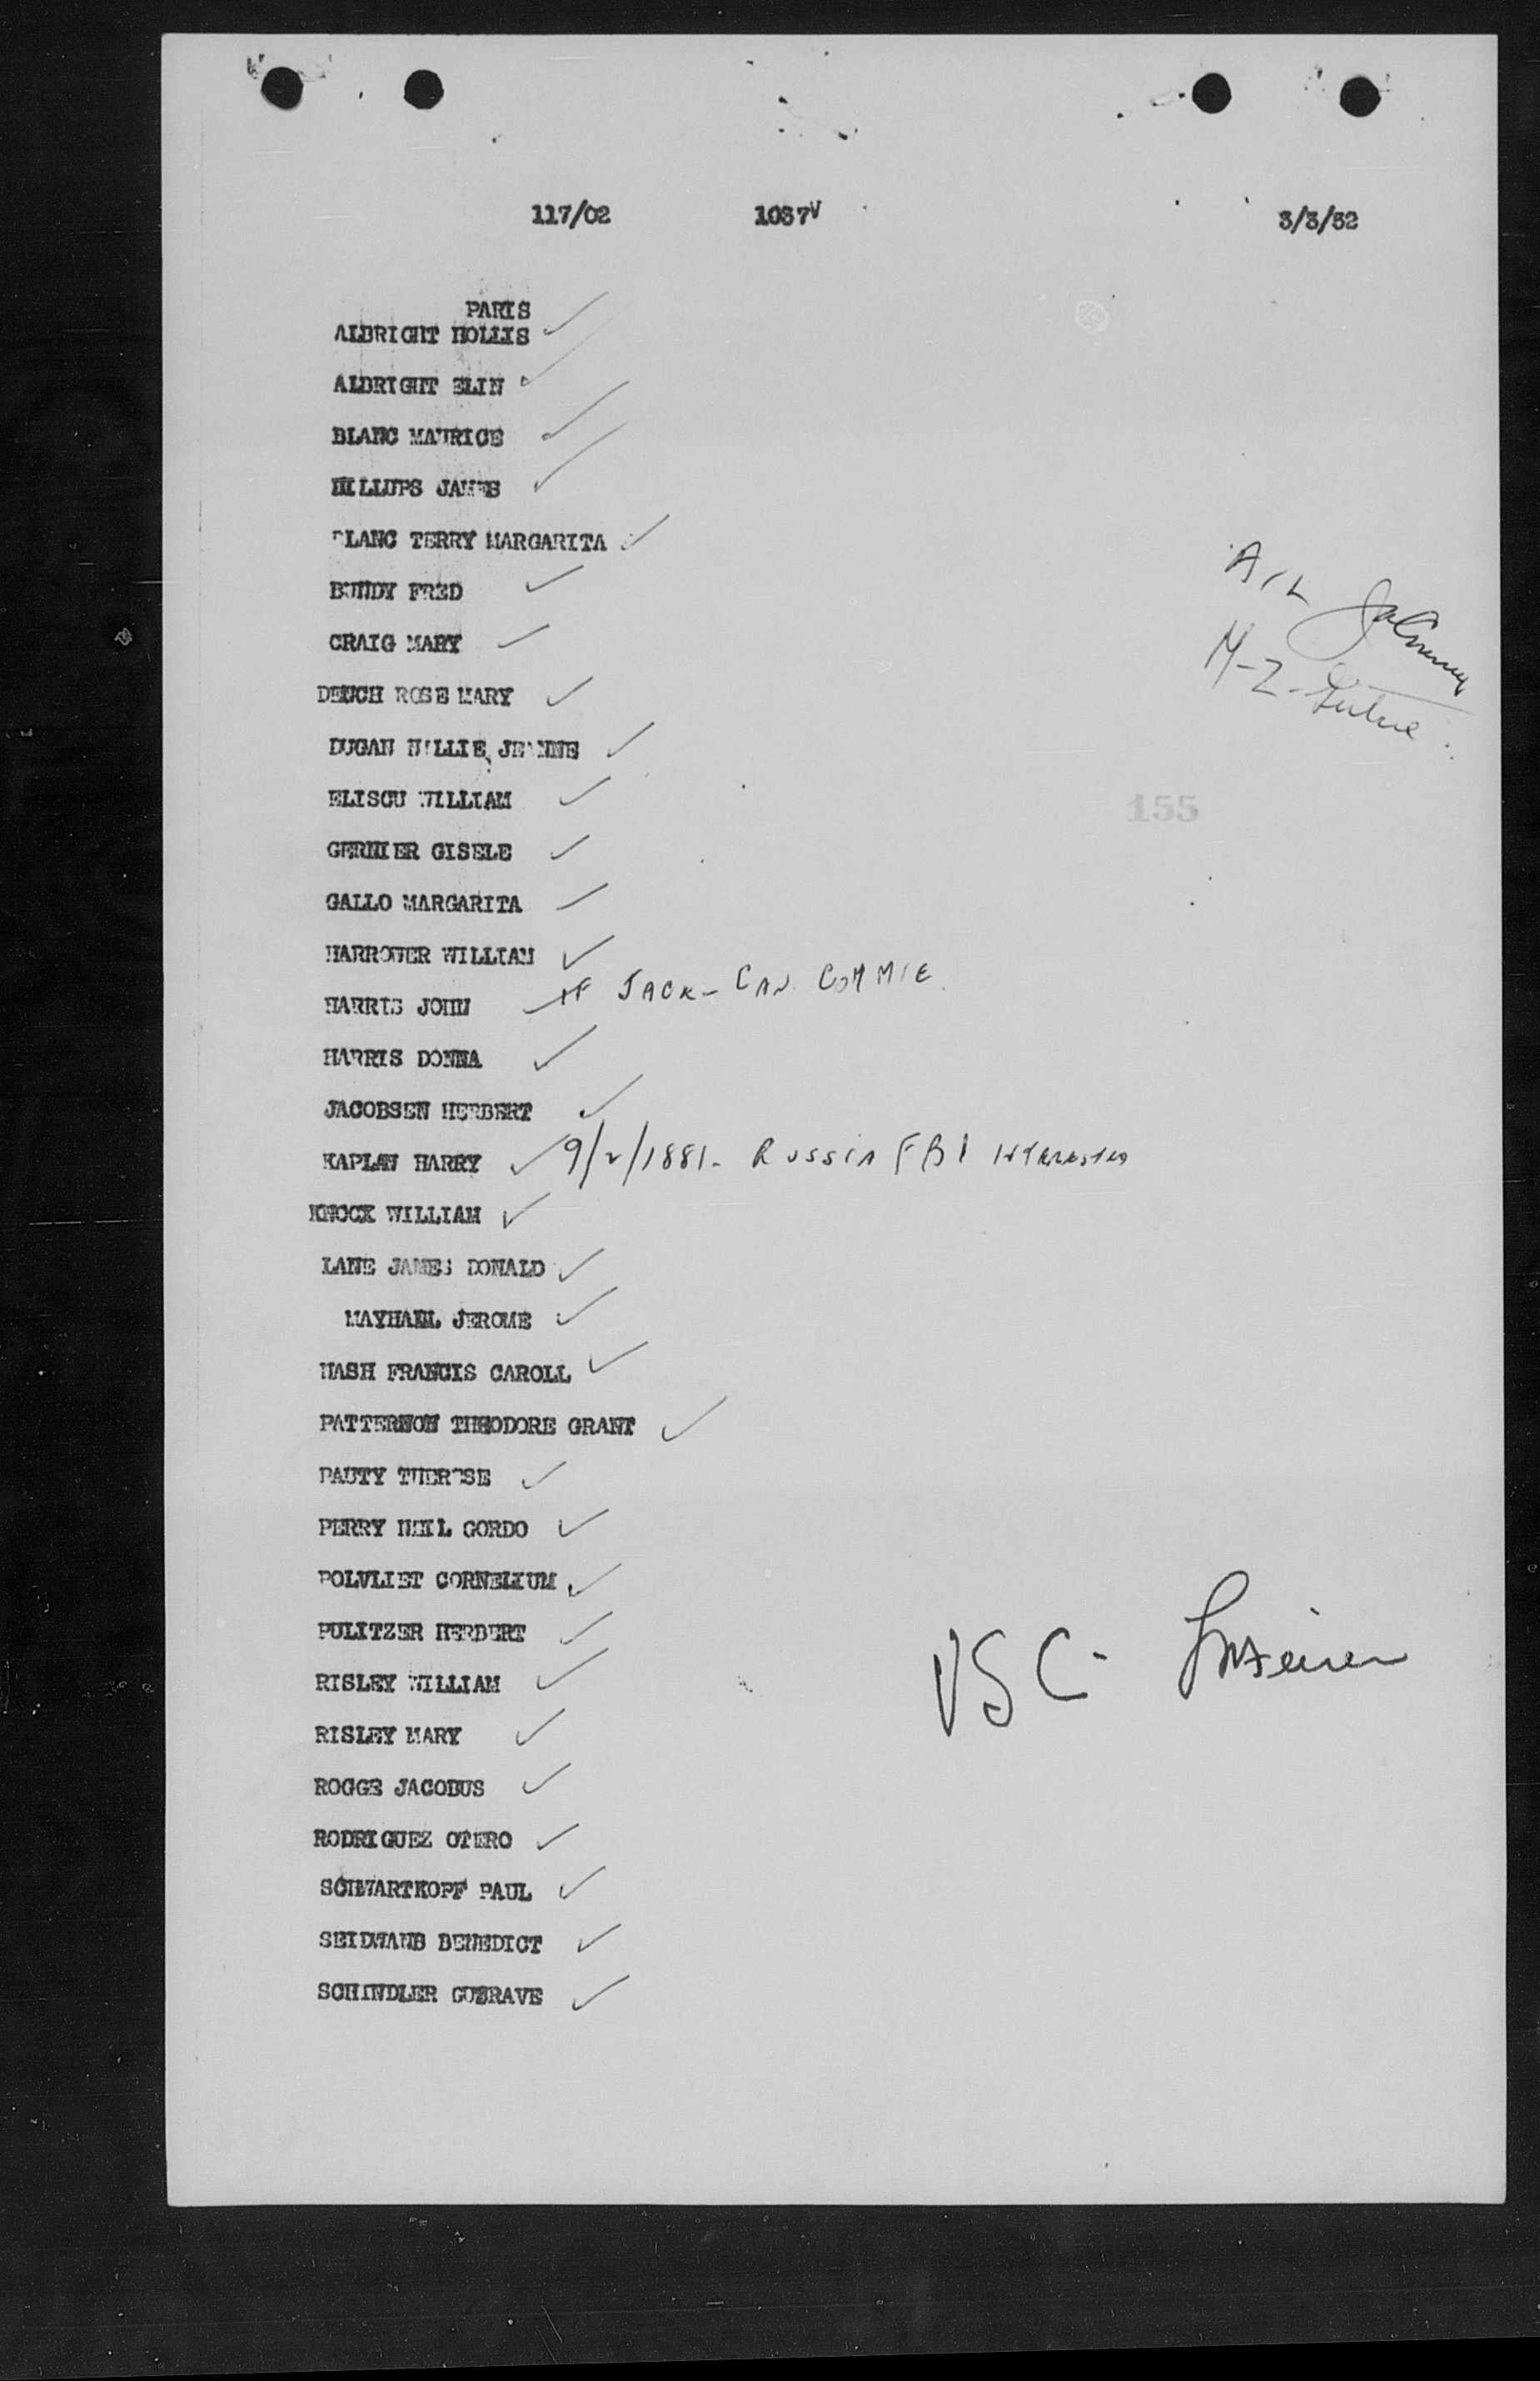 117/02 1037V 3/3/52
PARIS
ALBRIGHT HOLLIS
ALBRIGHT ELIN
BLANC MAURICE
BILLUPS JAMES
BLANC TERRY MARGARITA
BUNDY FRED
CRAIG MARY
DEUCH ROSE MARY
DUGAN WILLIE JEANNE
ELISCU WILLIAM
GERNIER GISELE
GALLO MARGARITA
HARROWER WILLIAM
HARRIS JOHN IF JACK - CAN. COMMIE
HARRIS DONNA
JACOBSEN HERBERT
KAPLAN HARRY 9/2/1881- RUSSIA FBI INTERESTED
KNOCK WILLIAM
LANE JAMES DONALD
MAYHALL JEROME
NASH FRANCIS CAROLL
PATTERNON THEODORE GRANT
PAUTY THERESE
PERRY NEIL GORDO
POLVLIET CORNELIUM
PULITZER HERBERT
RISLEY WILLIAM
RISLEY MARY
ROGGE JACOBUS
RODRIGUEZ OTERO
SCHWARTKOPF PAUL
SEIDWAND BENEDICT
SCHINDLER GUSRAVE
A-L
M-Z-
155
VSC-